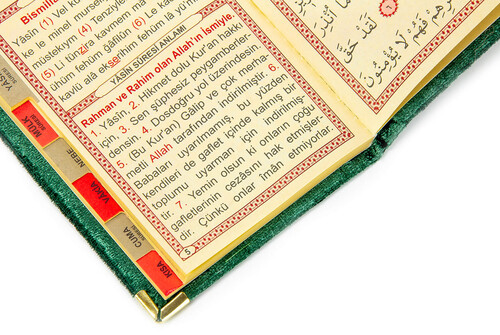 Bismill
Yâsîn (1) Vel
ke le minel mursel
müsteky (4) Tenziyle
(5) Li tünzira kavmem mâ
ühüm fehüm ğâfilûn (6) Le ka
kavlü alâ ekserihim fehüm lâ yü'm
YÂSÎN SÛRESİ ANLAMI
Rahman ve Rahim olan Allah'ın ismiyle.
1. Yâsîn. 2. Hikmet dolu Kur'an hakkı
için. 3. Sen şüphesiz peygamberler-
densin. 4. Dosdoğru yol üzerindesin.
5. (Bu Kur'an) Gâlip ve çok merha-
metli Allah tarafından indirilmiştir. 6.
Babaları uyarılmamış, bu yüzden
kendileri de gaflet içinde kalmış bir
toplumu uyarman için indirilmiş-
tir. 7. Yemin olsun ki onların çoğu
gafletlerinin cezâsını hak etmişler-
dir. Çünkü onlar îman etmiyorlar.
5
YÂSİN
SÛRESİ
MÜLK
SÛRESİ
NEBE
VÂKIA
CUMA
SÛRESİ
KISA
لَقَدْ حَقَّ
فَهُمْ لَا يُؤْمِنُونَ